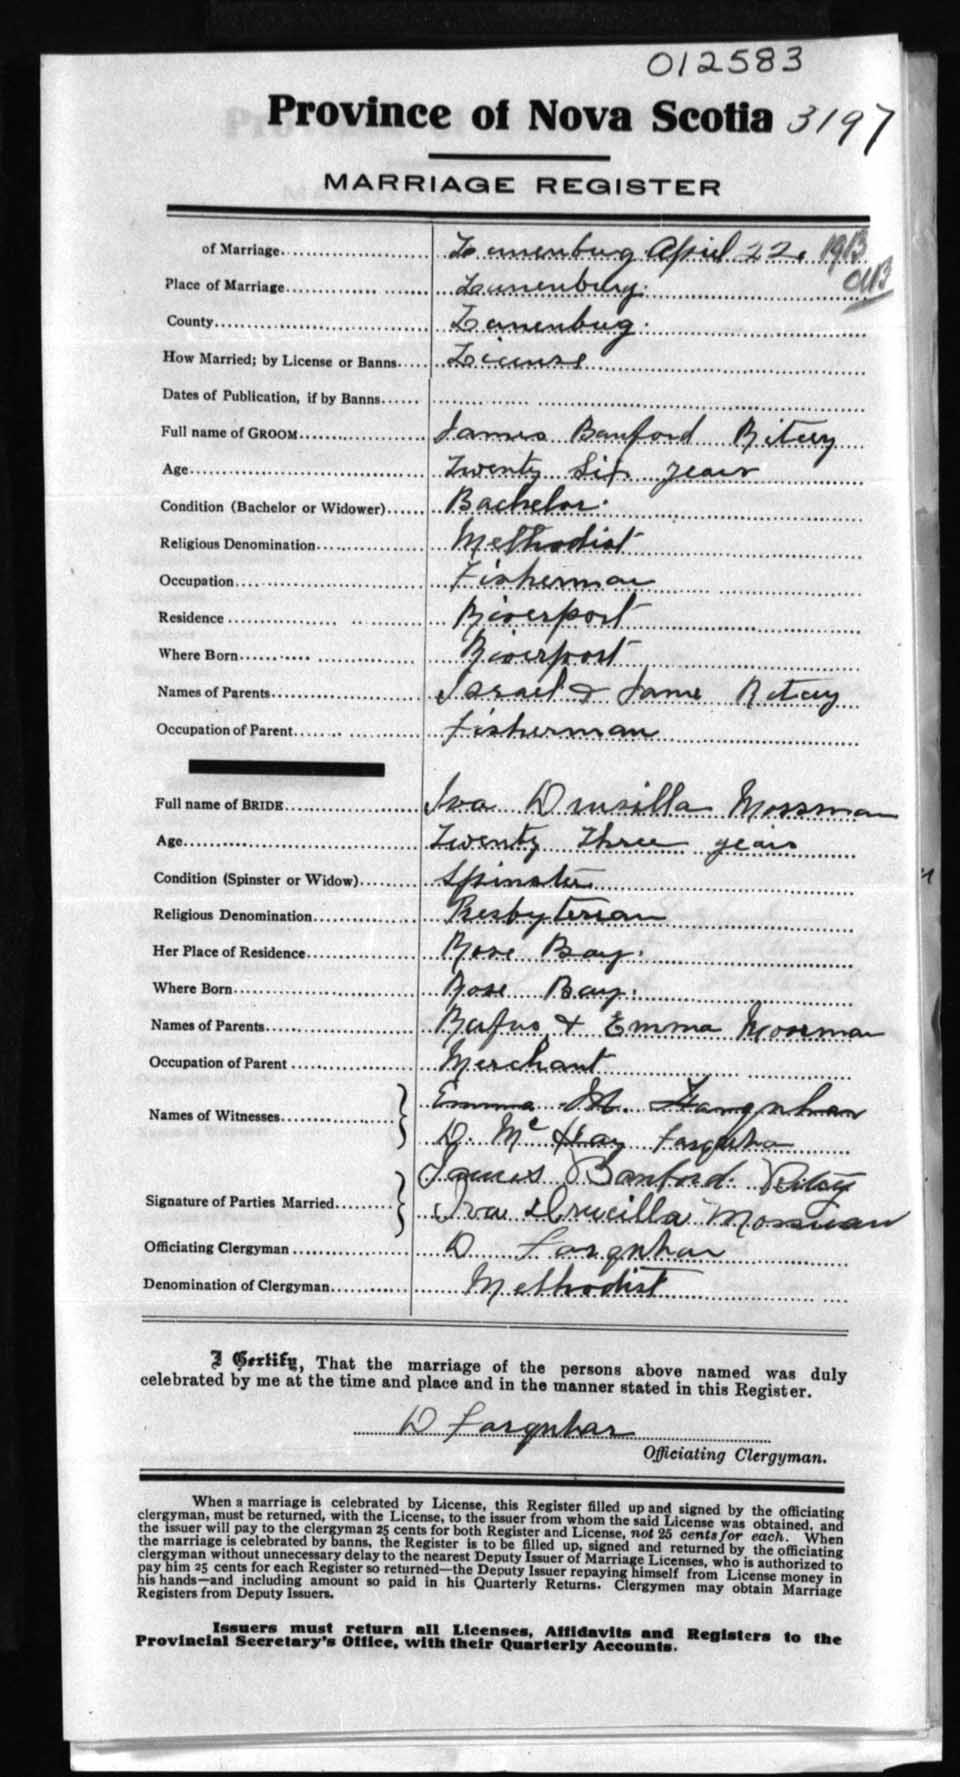 012583
Province of Nova Scotia 3197
MARRIAGE REGISTER
of Marriage Lunenburg April 22. 1913
Place of Marriage Lunenburg.
County Lunenburg.
How Married; by License or Banns License
Dates of Publication, if by Banns
Full name of GROOM James Banford Ritcey
Age Twenty Six years
Condition (Bachelor or Widower) Bachelor.
Religious Denomination Methodist
Occupation Fisherman
Residence Riverport
Where Born Riverport
Names of Parents Israel & Jame Ritcey
Occupation of Parent Fisherman
Full name of BRIDE Iva Drusilla Mossman
Age Twenty Three years
Condition (Spinster or Widow) Spinster
Religious Denomination Presbyterian
Her Place of Residence Rose Bay.
Where Born Rose Bay.
Names of Parents Rufus & Emma Mossman
Occupation of Parent Merchant
Names of Witnesses Emma M. Farquhar
D. McKay Farquhar
Signature of Parties Married James Banford Ritcey
Iva Drucilla Mossman
Officiating Clergyman D Farquhar
Denomination of Clergyman Methodist
I Certify, That the marriage of the persons above named was duly
celebrated by me at the time and place and in the manner stated in this Register.
D Farquhar
Officiating Clergyman.
When a marriage is celebrated by License, this Register filled up and signed by the officiating
clergyman, must be returned, with the License, to the issuer from whom the said License was obtained, and
the issuer will pay to the clergyman 25 cents for both Register and License, not 25 cents for each. When
the marriage is celebrated by banns, the Register is to be filled up, signed and returned by the officiating
clergyman without unnecessary delay to the nearest Deputy Issuer of Marriage Licenses, who is authorized to
pay him 25 cents for each Register so returned—the Deputy Issuer repaying himself from License money in
his hands—and including amount so paid in his Quarterly Returns. Clergymen may obtain Marriage
Registers from Deputy Issuers.
Issuers must return all Licenses, Affidavits and Registers to the
Provincial Secretary's Office, with their Quarterly Accounts.